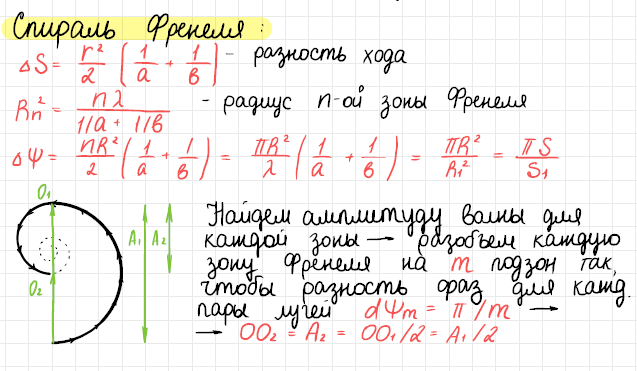 Спираль Френеля:
ΔS = r²/2 (1/a + 1/в) - разность хода
Rn² = nλ/(1/a + 1/в) - радиус n-ой зоны Френеля
ΔΨ = nR²/2 (1/a + 1/в) = πR²/λ (1/a + 1/в) = πR²/R₁² = πS/S₁
O₁
A₁ A₂
O₂
Найдем амплитуду волны для
каждой зоны → разобьем каждую
зону Френеля на m подзон так,
чтобы разность фаз для кажд.
пары лучей dΨm = π/m →
→ OO₂ = A₂ = OO₁/2 = A₁/2